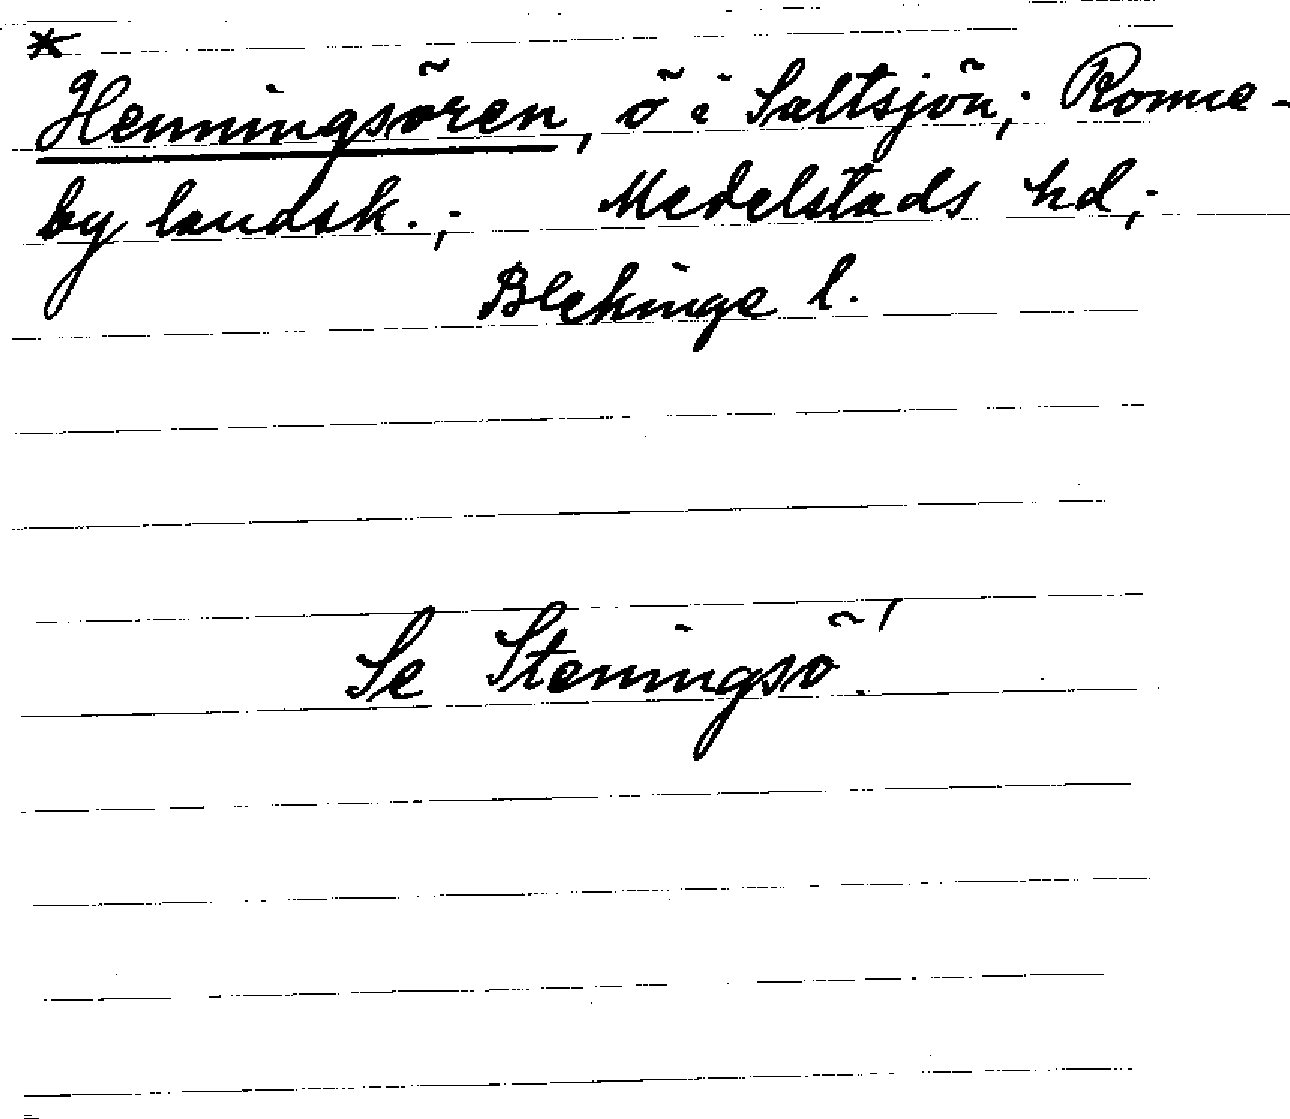 *
Henningsören, ö i Saltsjön; Ronne-
by landsk.; Medelstads hd;
Blekinge l.
Se Stenningsö!